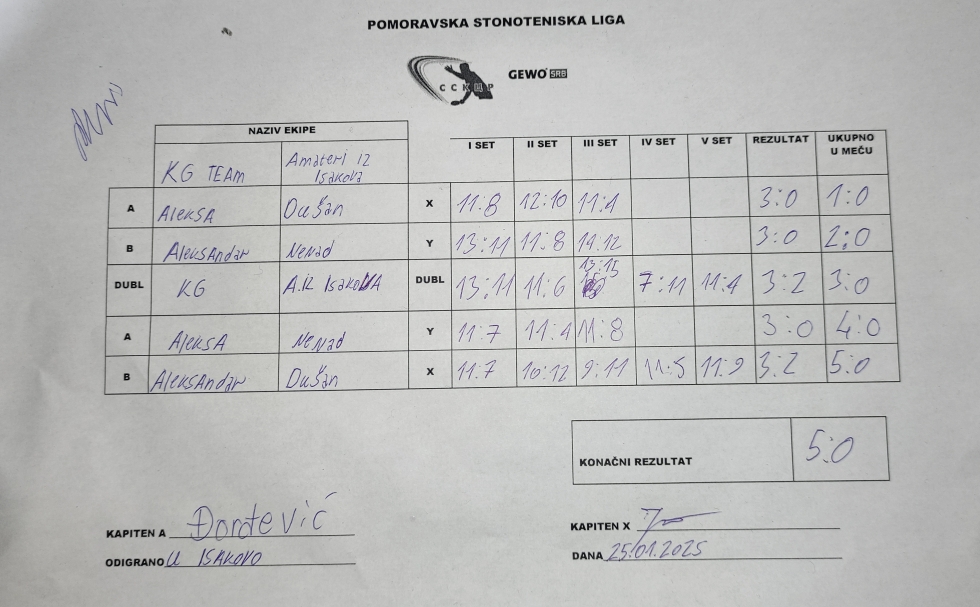 POMORAVSKA STONOTENISKA LIGA
ССКЦР GEWO SRB
NAZIV EKIPE I SET II SET III SET IV SET V SET REZULTAT UKUPNO U MEČU
KG TEAM Amateri iz Isakova
A AleksA Dušan X 11:8 12:10 11:4 3:0 1:0
B AleksAndar NeNad Y 13:11 11:8 14:12 3:0 2:0
DUBL KG A.iz IsakoVA DUBL 13:11 11:6 13:15 7:11 11:4 3:2 3:0
A AleksA NeNad Y 11:7 11:4 11:8 3:0 4:0
B AleksAndar Dušan X 11:7 10:12 9:11 11:5 11:9 3:2 5:0
KONAČNI REZULTAT 5:0
KAPITEN A Đorđević KAPITEN X
ODIGRANO U ISAKOVO DANA 25.01.2025